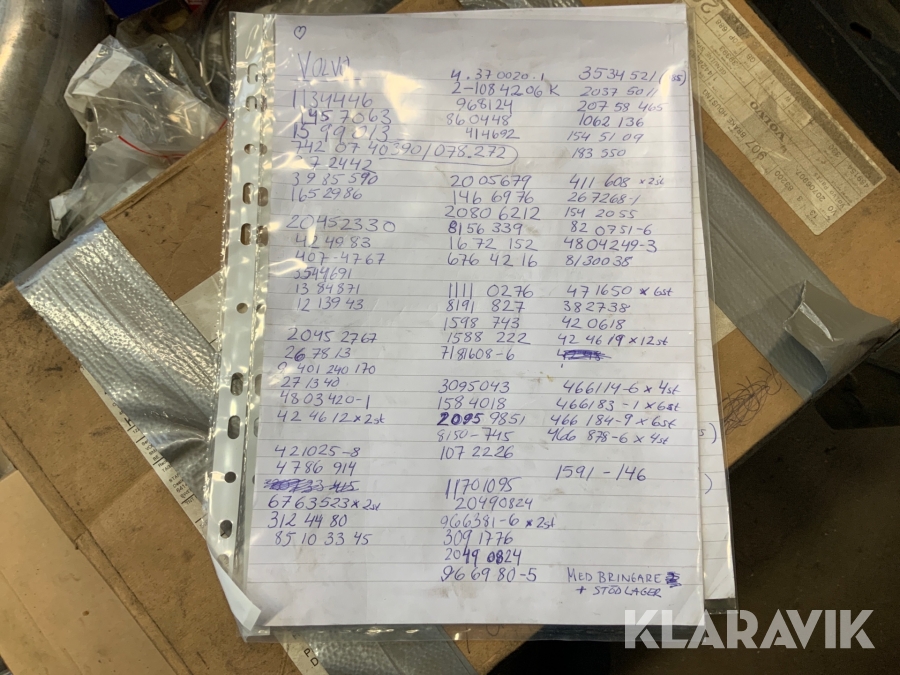 VOLVO
1134446
1457063
1599013
742 07 40390/078.272
72442
3985590
1652986
20452330
424983
407-4767
3544691
1384871
1213943
2045 2767
267813
9 401 240 170
271340
4803420-1
424612 x 2st
421025-8
4786914
6763523 x 2st
3124480
85103345
4.370020.1
2-1084206K
968124
860448
414692
2005679
1466976
20806212
8156339
1672152
6764216
1111 0276
8191 827
1598 743
1588 222
7181608-6
3095043
1584018
2095 9851
8150-745
1072226
11701095
20490824
966381-6 x 2st
3091776
2049 0824
966980-5
3534521
2037 5011
207 58 465
1062 136
154 51 09
183 550
411 608 x 2st
267268-1
154 2055
820751-6
4804249-3
8130038
471650 x 6st
382738
420618
424619 x 12st
466114-6 x 4st
466183-1 x 6st
466184-9 x 6st
466 878-6 x 4st
1591-146
MED BRINGARE
+ STÖDLAGER
KLARAVIK
VOLVO
967